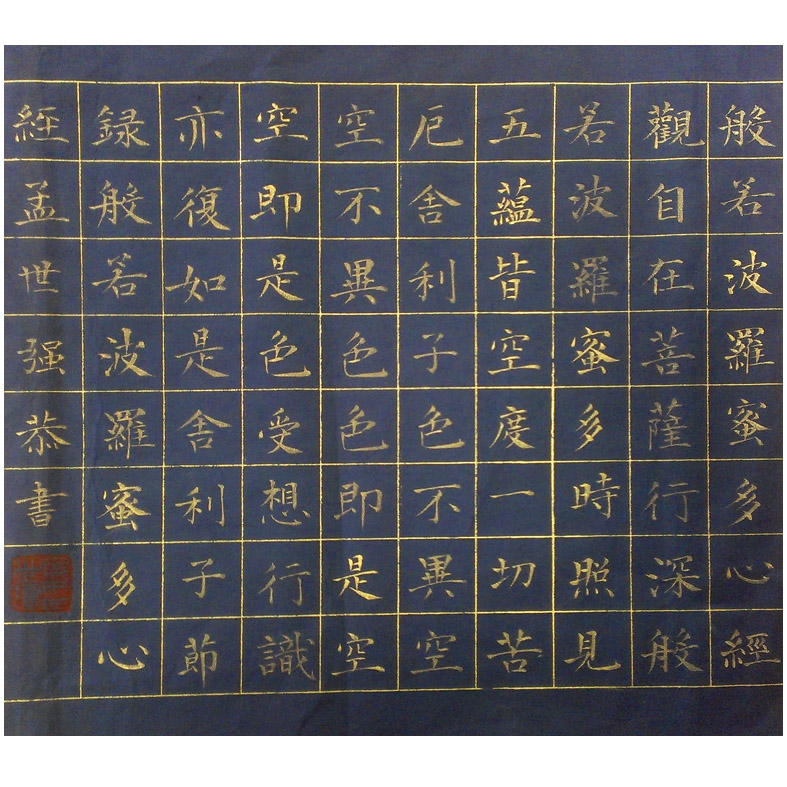 般若波羅蜜多心經
觀自在菩薩行深般
若波羅蜜多時照見
五蘊皆空度一切苦
厄舍利子色不異空
空不異色色即是空
空即是色受想行識
亦復如是舍利子節
録般若波羅蜜多心
經孟世强恭書